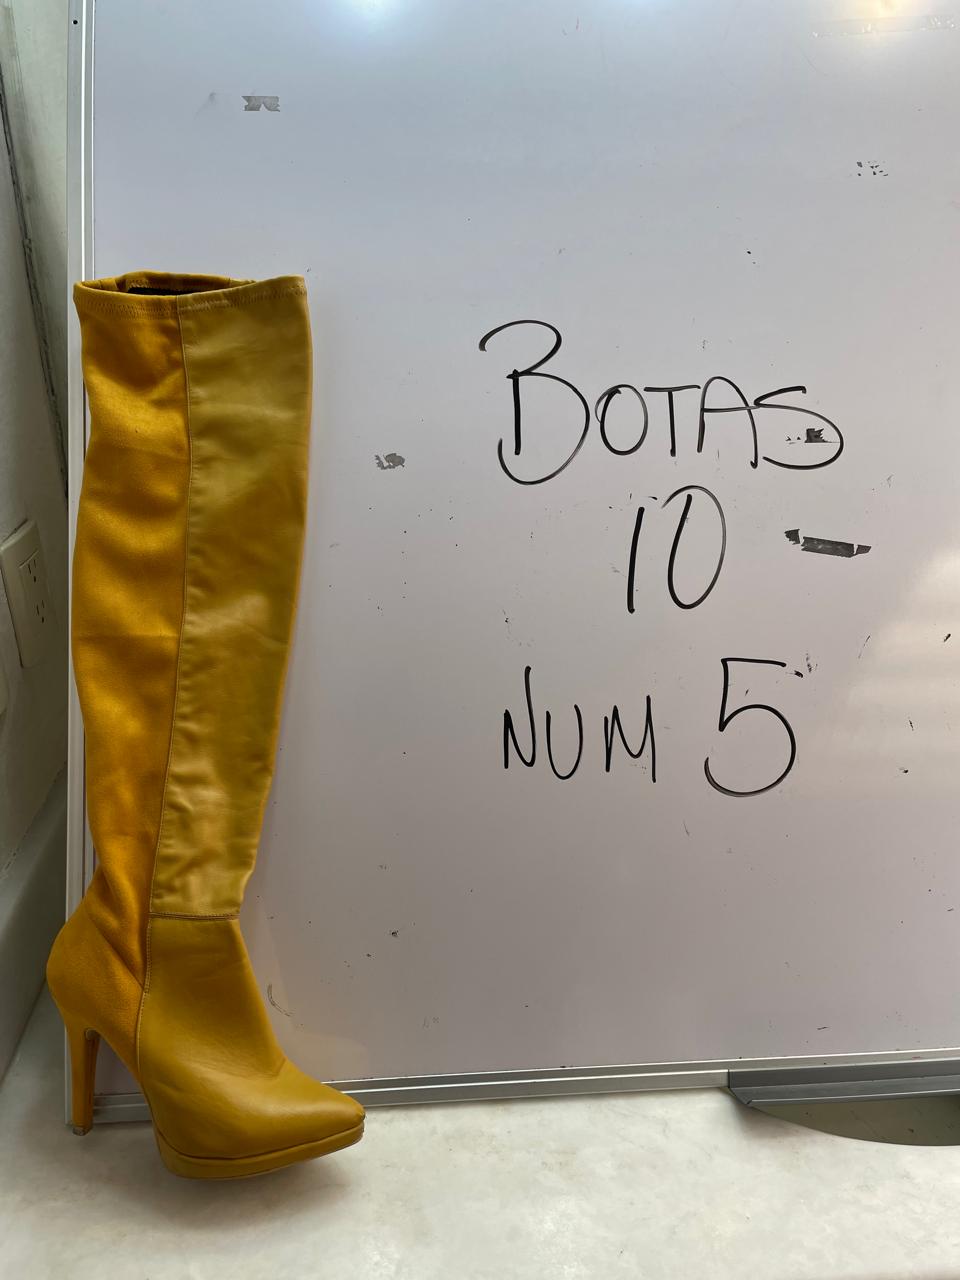 BOTAS
10
NUM 5